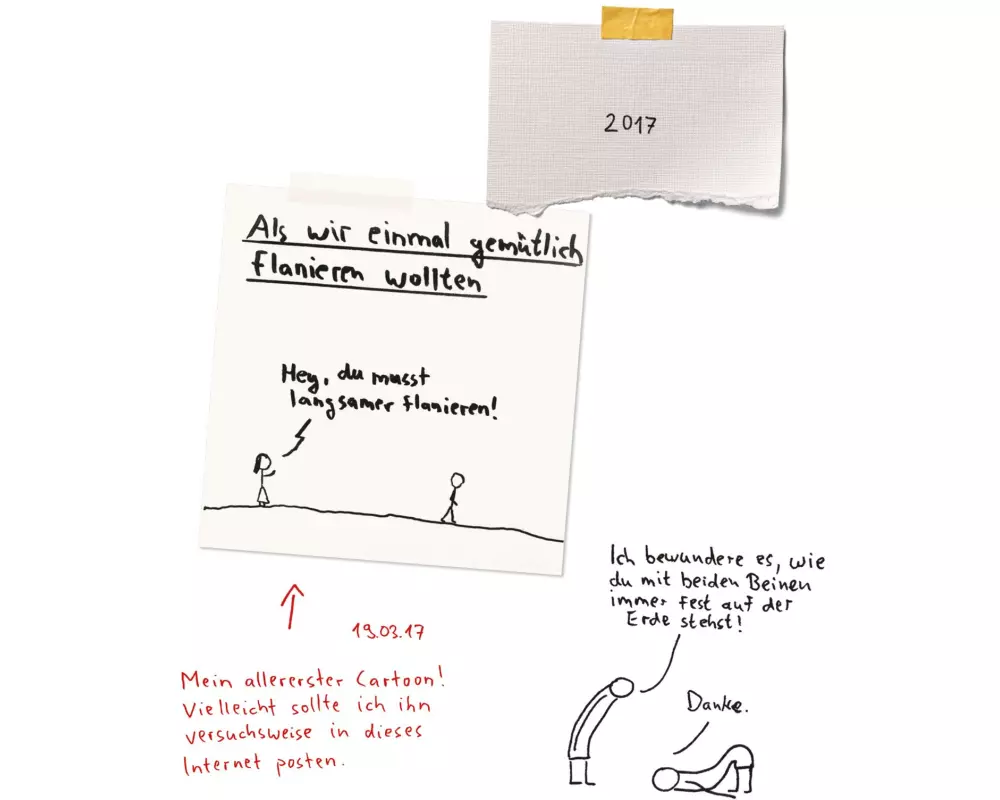 2017
Als wir einmal gemütlich
flanieren wollten
Hey, du musst
langsamer flanieren!
19.03.17
Mein allererster Cartoon!
Vielleicht sollte ich ihn
versuchsweise in dieses
Internet posten.
Ich bewundere es, wie
du mit beiden Beinen
immer fest auf der
Erde stehst!
Danke.